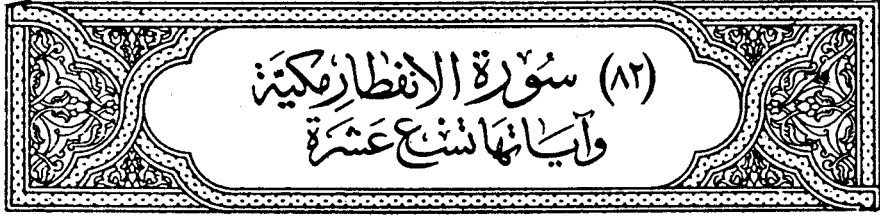 (٨٢) سُورَة الانفِطارِ مَكيَّة
وَآيَاتهَا تسْع عَشرَة